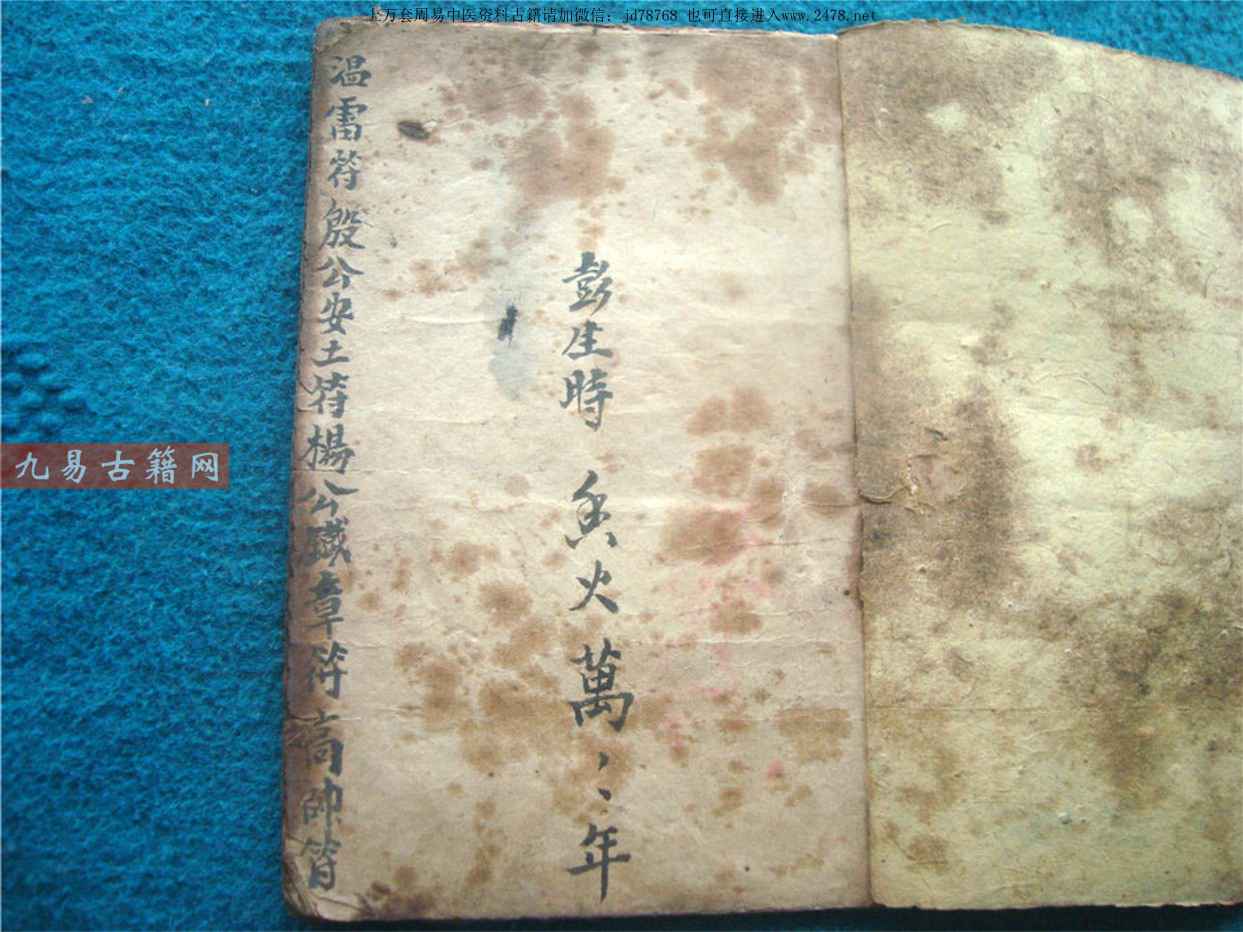 上万套周易中医资料古籍请加微信：jd78768 也可直接进入www.2478.net
彭生時 香火萬丶丶年
温雷符殷公安土符楊公藏章符高帥符
九易古籍网